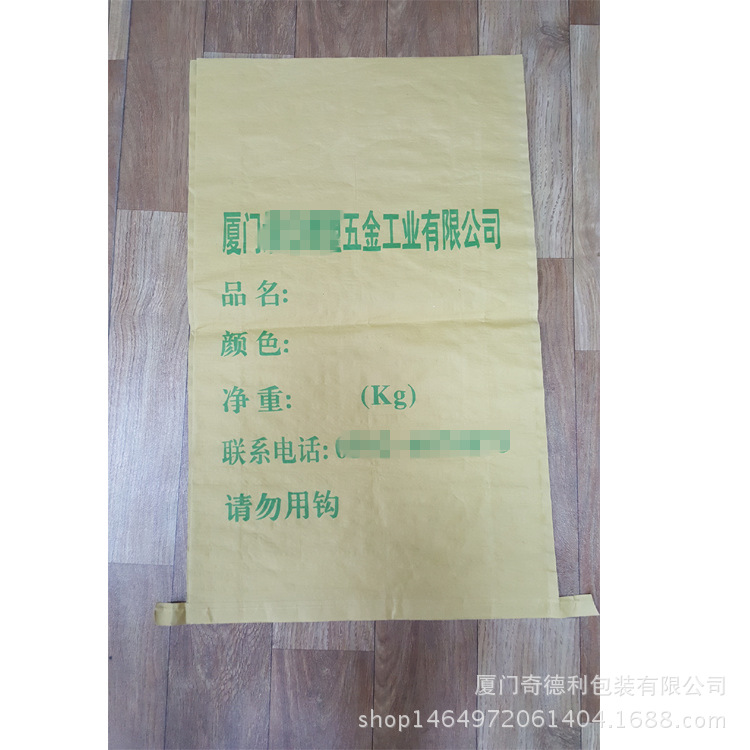 厦门 五金工业有限公司
品名:
颜色:
净重: (Kg)
联系电话:
请勿用钩
厦门奇德利包装有限公司
shop1464972061404.1688.com